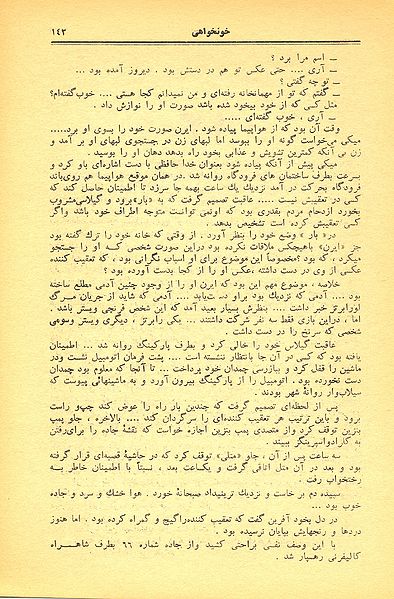 خونخواهی
۱۴۳
ــ اسم مرا برد ؟
ــ آری .... حتی عکس تو هم در دستش بود . دیروز آمده بود ...
ــ تو چه گفتی ؟
ــ گفتم که تو از مهمانخانه رفته‌ای و من نمیدانم کجا هستی .... خوب گفته‌ام؟
مثل کسی که از خود بیخود شده باشد صورت او را نوازش داد .
ــ آری ، خوب گفته‌ای .....
وقت آن بود که از هواپیما پیاده شود . ایرن صورت خود را بسوی او برد.....
میکی میخواست گونه او را ببوسد اما لبهای زن در جستجوی لبهای او بر آمد و
زن بی آنکه کمترین تشویش و عذابی بخود راه بدهد دهان او را بوسید .
میکی پیش از آنکه پیاده شود بعنوان خدا حافظی با دست اشاره‌ای باو کرد و
بسرعت بطرف ساختمان های فرودگاه روانه شد . در همان موقع هواپیما هم روی باند
فرودگاه بحرکت در آمد نزدیك یك ساعت بهمه جا سرزد تا اطمینان حاصل کند که
کسی در تعقیبش نیست ..... عاقبت تصمیم گرفت که به «بار» برود و گیلاسی مشروب
بخورد ازدحام مردم بقدری بود که او نمی توانست متوجه اطراف خود باشد واگر
کسی تعقیبش کرده است تشخیص بدهد .
در« بار » وضع خود را بنظر آورد . از وقتی که خانه خود را ترك گفته بود
جز «ایرن» باهیچکس ملاقات نکرده بود دراین صورت شخصی کـه او را جستجو
میکرد ، که بود؟ مخصوصاً این موضوع برای او اسباب نگرانی بود ، که تعقیب کننده
عکسی از وی در دست داشته ، عکس او را از کجا بدست آورده بود ؟
خلاصه ، موضوع مهم این بود که ایرن او را از وجود چنین آدمی مطلع ساخته
بود .... آدمی که نزدیك بود براو دست‌یابد .... آدمی که شاید از جریان مـرگ
اورابرتز خبر داشت .... بنظرش بسیار بعید آمد که این شخص فرنچی ویستر باشد .
اما ، دراین بازی فقط سه نفر شرکت داشتند ... یکی رابرتز ، دیگری ویستر وسومی
شخصی که سرنخ را در دست داشت .
عاقبت گیلاس خود را خالی کرد و بطرف پارکینگ روانه شد ... اطمینان
یافته بود که کسی در آن جا بانتظار ننشسته است .... پشت فرمان اتومبیل نشست ودر
ماشین را قفل کرد و ببازرسی چمدان خود پرداخت ... تا آنجا که معلوم بود چمدان
دست نخورده بود . اتومبیل را از پارکینگ بیرون آورد و به ماشینهائی پیوست که
سیلاب‌وار روانهٔ شهر بودند .
پس از لحظه‌ای تصمیم گرفت که چندین بار راه را عوض کند چپ‌و راست
برود و باین ترتیب هر تعقیب کننده‌ای را سرگردان کند .... بالاخره ، جلو پمپ
بنزین توقف کرد واز متصدی پمپ بنزین اجازه خواست که نقشهٔ جاده را برای‌رفتن
به کلرادواسپرینگز ببیند .
سه ساعت پس از آن ، جلو «متلی» توقف کرد که در حاشیهٔ قصبه‌ای قرار گرفته
بود و بعد در آن متل اتاقی گرفت و یکساعت بعد ، نسبتاً با اطمینان خاطر بـه
رختخواب رفت .
سپیده دم بر خاست و نزدیك ترینیداد صبحانهٔ خورد . هوا خشك و سرد و جاده
خوب بود ...
در دل بخود آفرین گفت که تعقیب کننده‌راگیج و گمراه کرده بود . اما هنوز
دردها و رنجهایش بپایان نرسیده بود .
با این وصف نفسی براحتی کشید واز جاده شماره ۶۶ بطرف شاهـراه
کالیفرنی رهسپار شد .